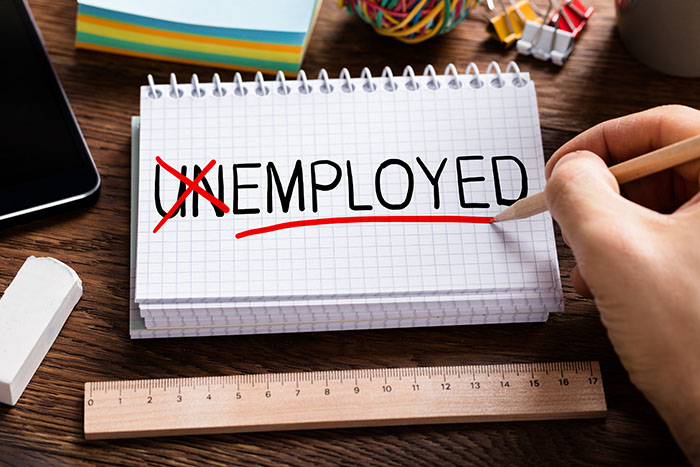 UNEMPLOYED
0 1 2 3 4 5 6 7 8 9 10 11 12 13 14 15 16 17